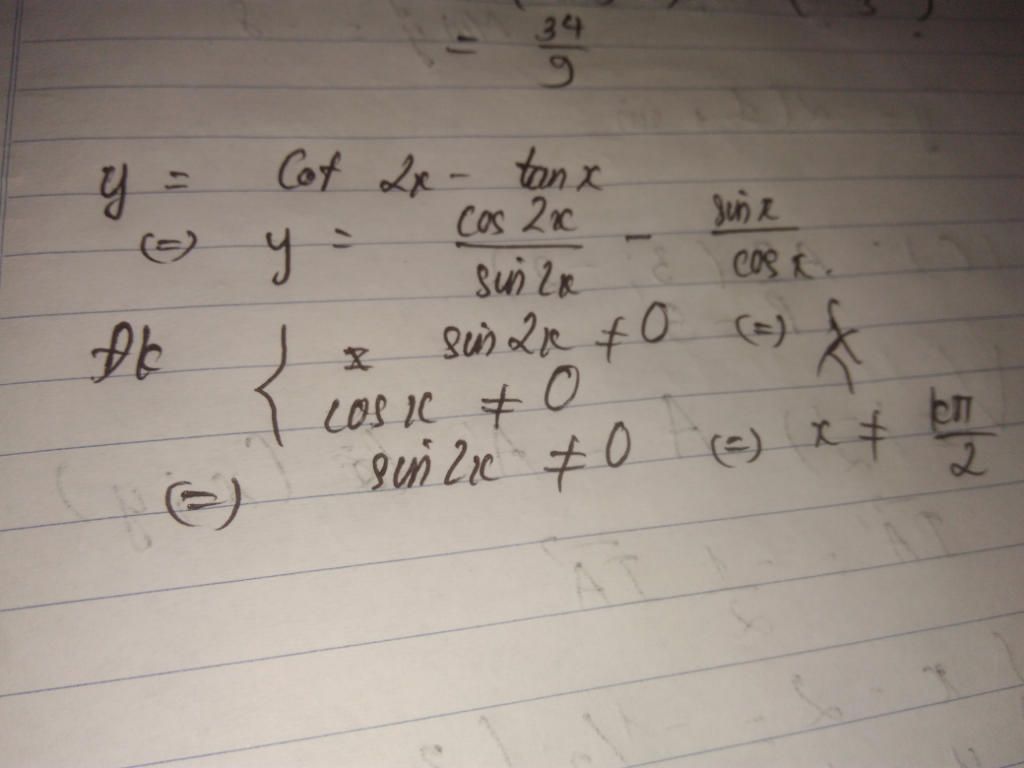 = 34/9
y = Cot 2x - tan x
(=) y = cos 2x / sin 2x - sin x / cos x.
Đk { sin 2x ≠ 0 (=)
cos x ≠ 0
(=) sin 2x ≠ 0 (=) x ≠ kπ/2